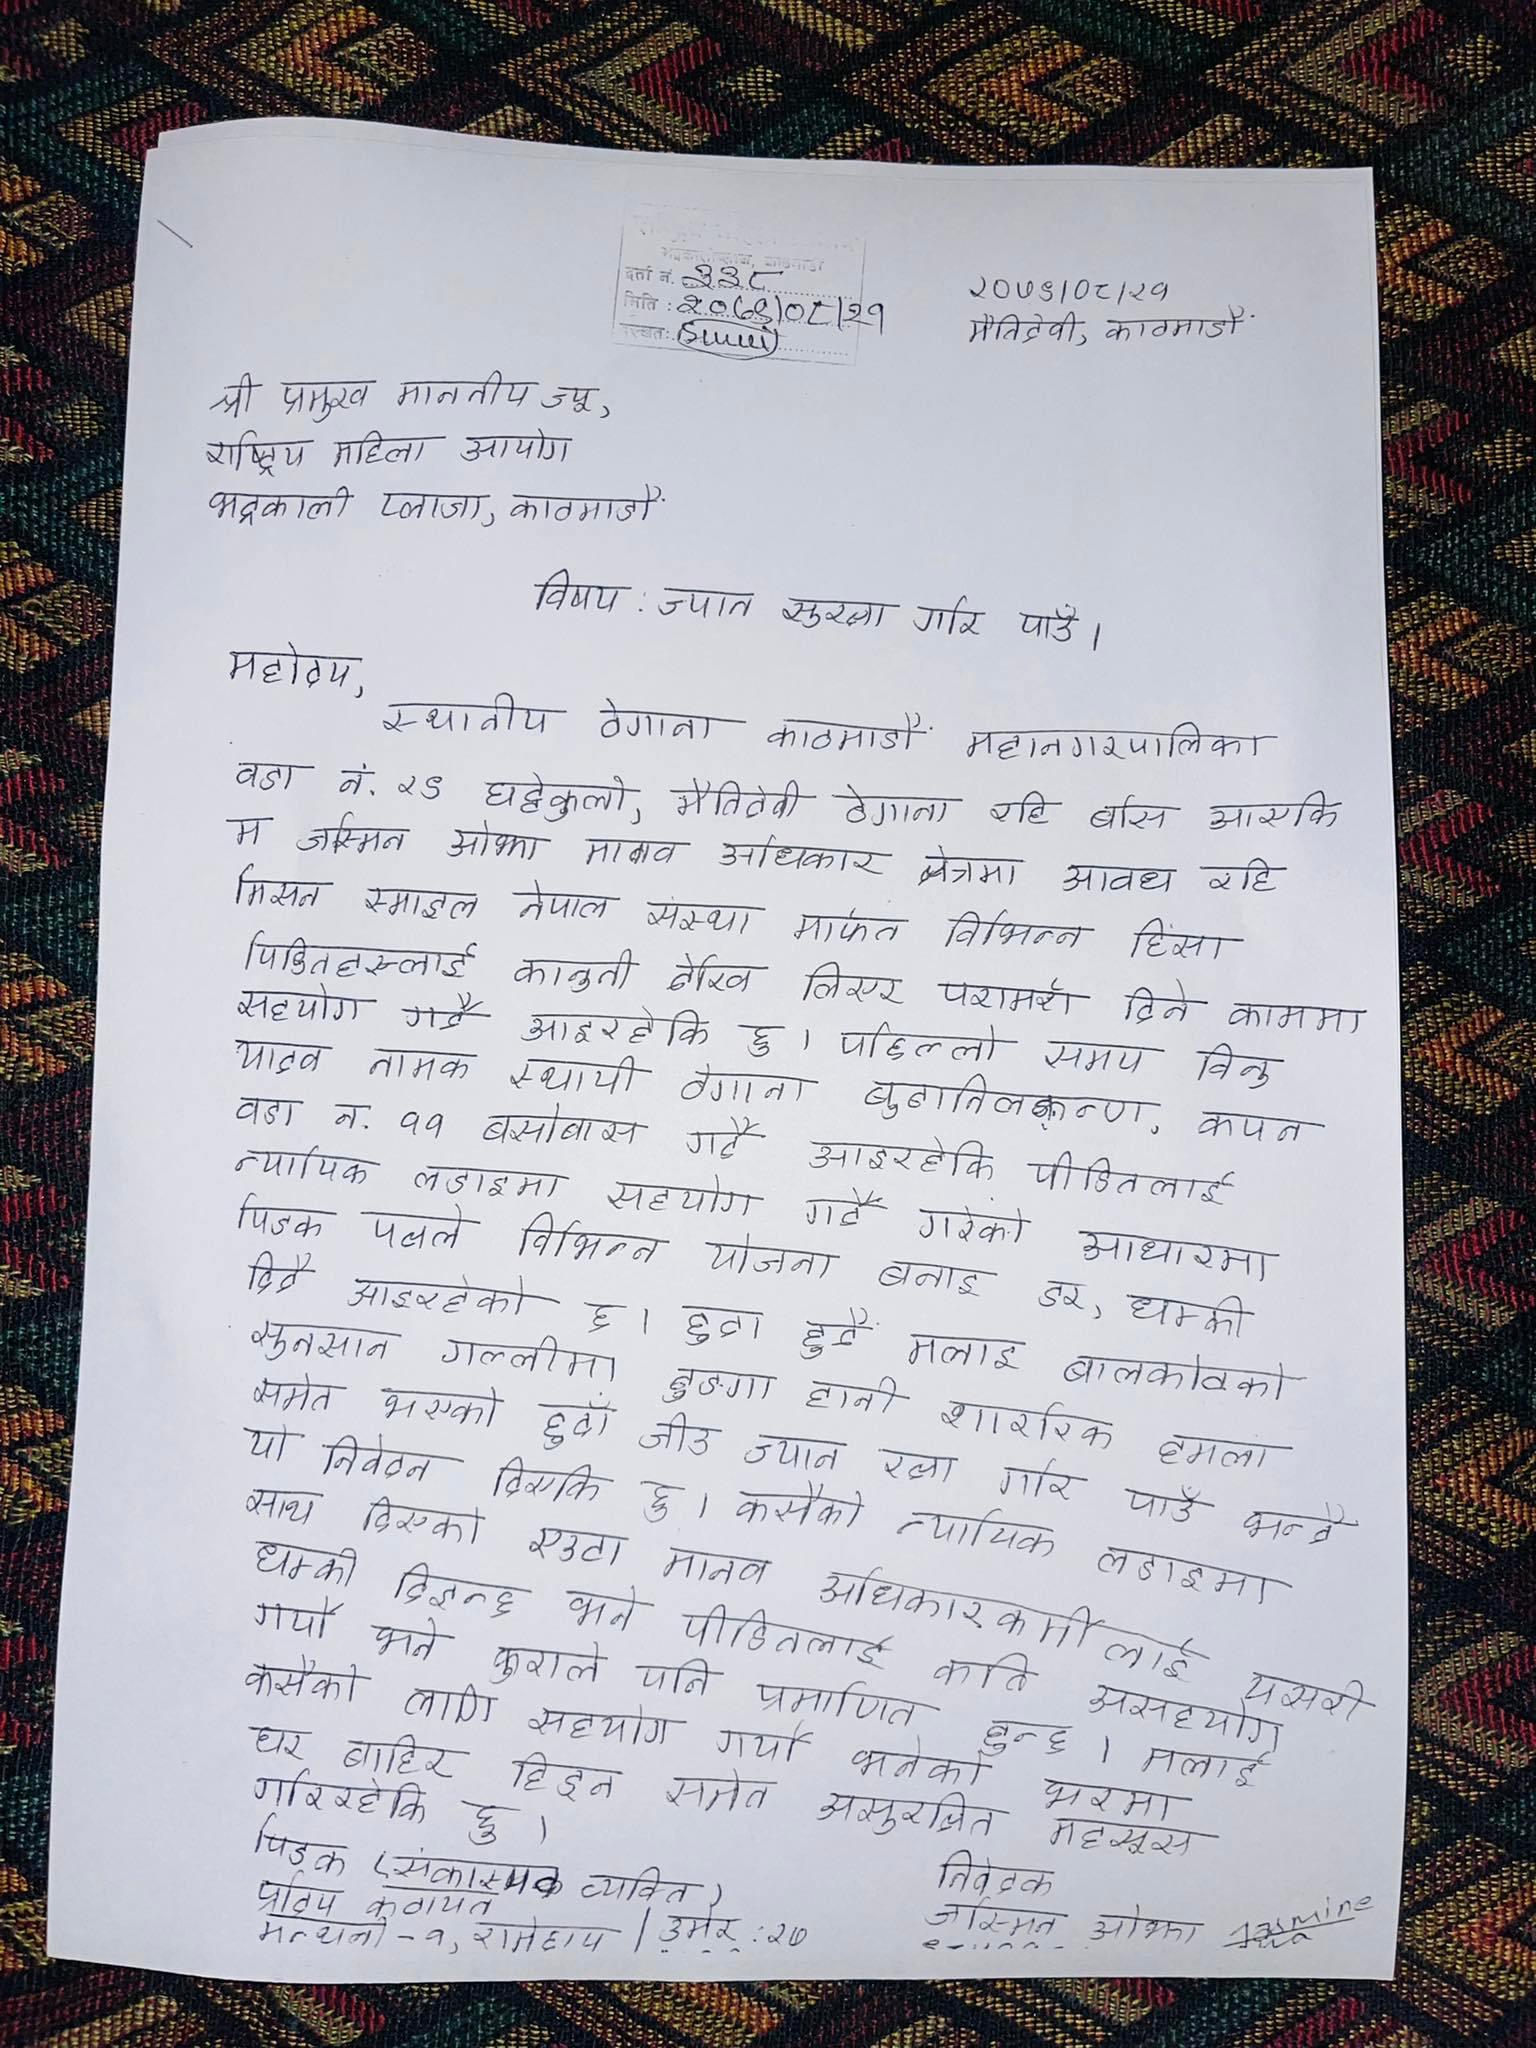 भद्रकाली प्लाजा, काठमाडौं
दर्ता नं. ३३८
मिति : २०७९/०८/२१
२०७९/०८/२१
मैतिदेवी, काठमाडौं
श्री प्रमुख माननीय ज्यू,
राष्ट्रिय महिला आयोग
भद्रकाली प्लाजा, काठमाडौं
विषय : ज्यान सुरक्षा गरि पाउँ ।
महोदय,
स्थानीय ठेगाना काठमाडौं महानगरपालिका
वडा नं. २९ घट्टेकुलो, मैतिदेवी ठेगाना रहि बसि आएकि
म जस्मिन ओझा मानव अधिकार क्षेत्रमा आवध रहि
मिसन स्माइल नेपाल संस्था मार्फत विभिन्न हिंसा
पिडितहरुलाई कानुनी देखि लिएर परामर्श दिने काममा
सहयोग गर्दै आइरहेकि छु । पछिल्लो समय विनु
यादव नामक स्थायी ठेगाना बुढानिलकण्ठ, कपन
वडा न. ११ बसोबास गर्दै आइरहेकि पीडितलाई
न्यायिक लडाइमा सहयोग गर्दै गरेको आधारमा
पिडक पक्षले विभिन्न योजना बनाइ डर, धम्की
दिदै आइरहेको छ । हुदा हुदै मलाइ बालकोटको
सुनसान गल्लीमा ढुङगा हानी शारीरिक हमला
समेत भएको हुदाँ जीउ ज्यान रक्षा गरि पाउँ भन्दै
यो निवेदन दिएकि छु । कसैको न्यायिक लडाइमा
साथ दिएको एउटा मानव अधिकारकर्मी लाई यसरी
धम्की दिइन्छ भने पीडितलाई कति असहयोग
गर्यो भने कुराले पनि प्रमाणित हुन्छ । मलाई
कसैको लागि सहयोग गर्यो भनेको भरमा
घर बाहिर हिड्न समेत असुरक्षित महसूस
गरिरहेकि छु ।
पिडक (संकास्पद व्यक्ति)
प्रदिप कठायत
मन्थली - १, रामेछाप / उमेर : २७
निवेदक
जस्मिन ओझा Jasmine